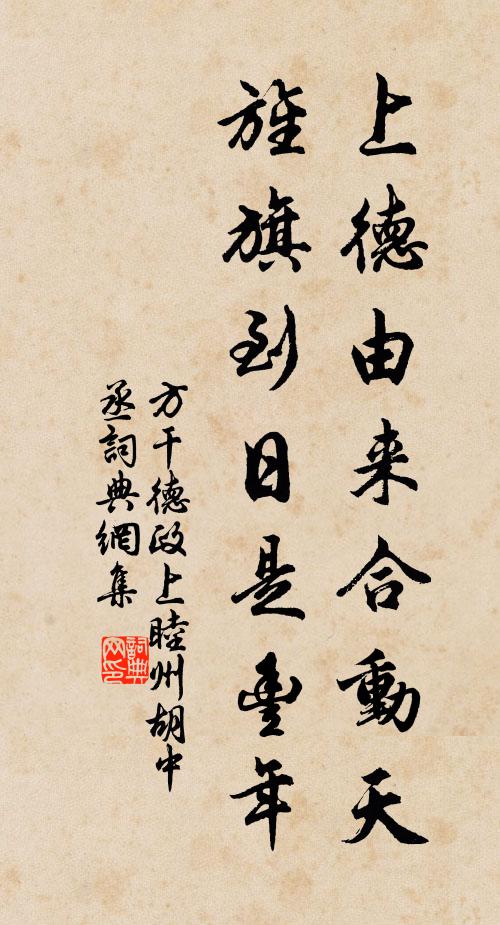 上德由来合動天
旌旗到日是豐年
方干德政上睦州胡中
丞詞典網集
詞典网印